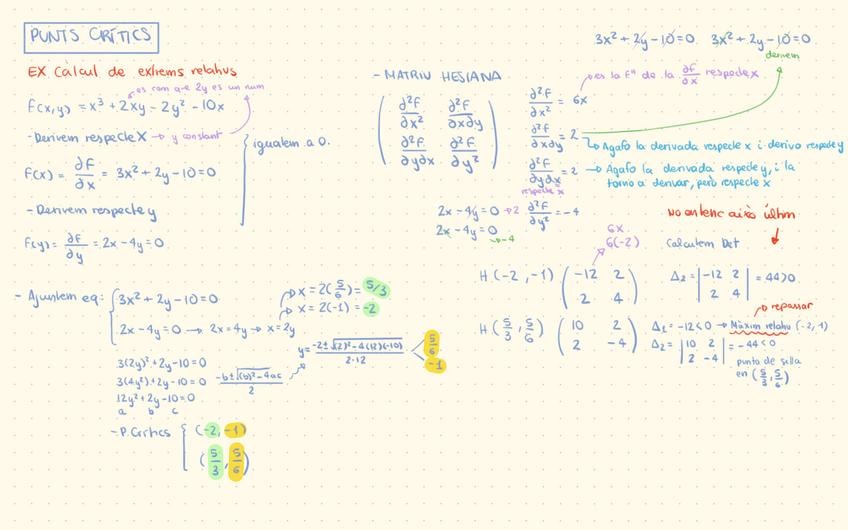 PUNTS CRÍTICS
EX Càlcul de extrems relatius
es com que 2y es un num
F(x,y) = x³ + 2xy - 2y² - 10x
- Derivem respecte X → y constant
F(x) = ∂F/∂x = 3x² + 2y - 10 = 0
- Derivem respecte y
F(y) = ∂F/∂y = 2x - 4y = 0
igualem a 0.
- Ajuntem eq:
3x² + 2y - 10 = 0
2x - 4y = 0 → 2x = 4y → x = 2y
x = 2(5/6) = 5/3
x = 2(-1) = -2
3(2y)² + 2y - 10 = 0
3(4y²) + 2y - 10 = 0
12y² + 2y - 10 = 0
a b c
-b ± √(b)² - 4ac / 2
y = -2 ± √(2)² - 4(12)(-10) / 2·12
5/6
-1
- P. Crítics
(-2, -1)
(5/3, 5/6)
- MATRIU HESIANA
∂²F/∂x² ∂²F/∂x∂y
∂²F/∂y∂x ∂²F/∂y²
3x² + 2y - 10 = 0 3x² + 2y - 10 = 0
derivem
∂²F/∂x² = 6x
→ es la Fª de la ∂F/∂x respecte x
∂²F/∂x∂y = 2
→ Agafo la derivada respecte x i derivo respecte y
∂²F/∂y∂x = 2 → Agafo la derivada respecte y, i la
torno a derivar, però respecte x
respecte x
2x - 4y = 0 → 2
∂²F/∂y² = -4
2x - 4y = 0
→ -4
No entenc això últim
6x
6(-2)
Calculem Det
H (-2, -1)
-12 2
2 4
Δ₂ = |-12 2
2 4| = 44 > 0
→ repassar
H (5/3, 5/6)
10 2
2 -4
Δ₁ = -12 < 0 → Màxim relatiu (-2, 1)
Δ₂ = |10 2
2 -4| = -44 < 0
punto de silla
en (5/3, 5/6)